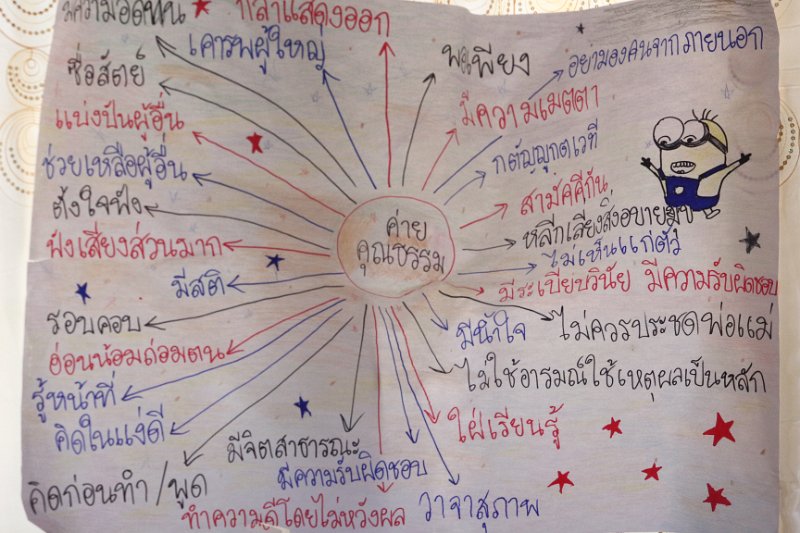 มีความอดทน
กล้าแสดงออก
เคารพผู้ใหญ่
ซื่อสัตย์
พอเพียง
อย่ามองคนจากภายนอก
แบ่งปันผู้อื่น
มีความเมตตา
ช่วยเหลือผู้อื่น
กตัญญูกตเวที
ตั้งใจฟัง
สามัคคีกัน
ค่าย
คุณธรรม
หลีกเลี่ยงสิ่งอบายมุข
ฟังเสียงส่วนมาก
ไม่เห็นแก่ตัว
มีสติ
มีระเบียบวินัย มีความรับผิดชอบ
รอบคอบ
มีน้ำใจ
ไม่ควรประชดพ่อแม่
อ่อนน้อมถ่อมตน
รู้หน้าที่
ไม่ใช้อารมณ์ใช้เหตุผลเป็นหลัก
คิดในแง่ดี
ใฝ่เรียนรู้
มีจิตสาธารณะ
มีความรับผิดชอบ
คิดก่อนทำ/พูด
ทำความดีโดยไม่หวังผล
วาจาสุภาพ